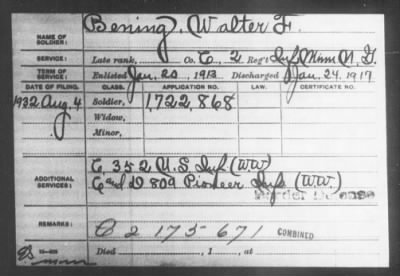 NAME OF SOLDIER: Bening, Walter F.
SERVICE: Late rank, Co. C, 2 Reg't Inf Minn N. G.
TERM OF SERVICE: Enlisted Jan. 20, 1913 Discharged Jan. 24, 1917
DATE OF FILING. CLASS. APPLICATION NO. LAW. CERTIFICATE NO.
1932 Aug 4 Soldier, 1,722,868
Widow,
Minor,
C, 352 U.S. Inf (WW)
ADDITIONAL SERVICES: C and D 809 Pioneer Inf (WW)
Border Defense
REMARKS: C 2 175 671 COMBINED
Died , 1 , at